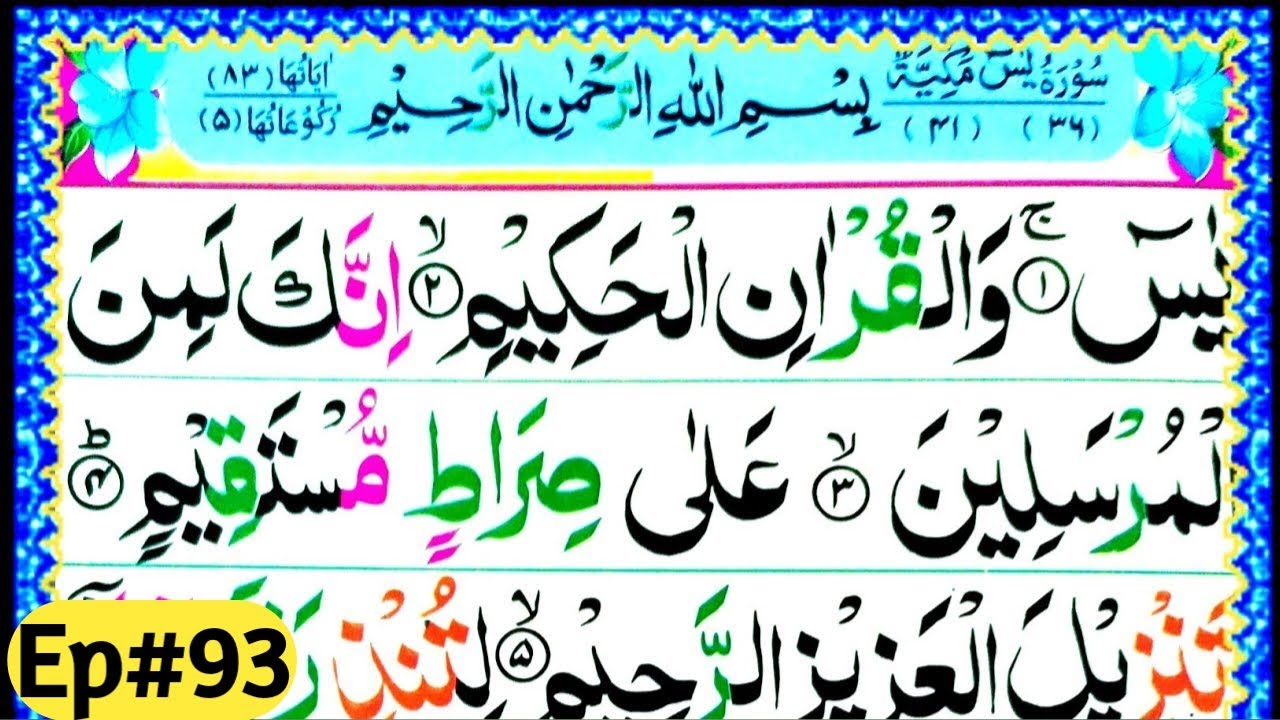 سُوْرَةُ يٰسٓ مَكِّيَّةٌ
(۳۶) (۴۱)
بِسْمِ اللّٰهِ الرَّحْمٰنِ الرَّحِيْمِ
اٰيَاتُهَا (۸۳)
رُكُوْعَاتُهَا (۵)
يٰسٓ ۚ ۱ وَالْقُرْاٰنِ الْحَكِيْمِ ۙ ۲ اِنَّكَ لَمِنَ
الْمُرْسَلِيْنَ ۙ ۳ عَلٰى صِرَاطٍ مُّسْتَقِيْمٍ ؕ ۴
تَنْزِيْلَ الْعَزِيْزِ الرَّحِيْمِ ۙ ۵ لِتُنْذِرَ
Ep#93